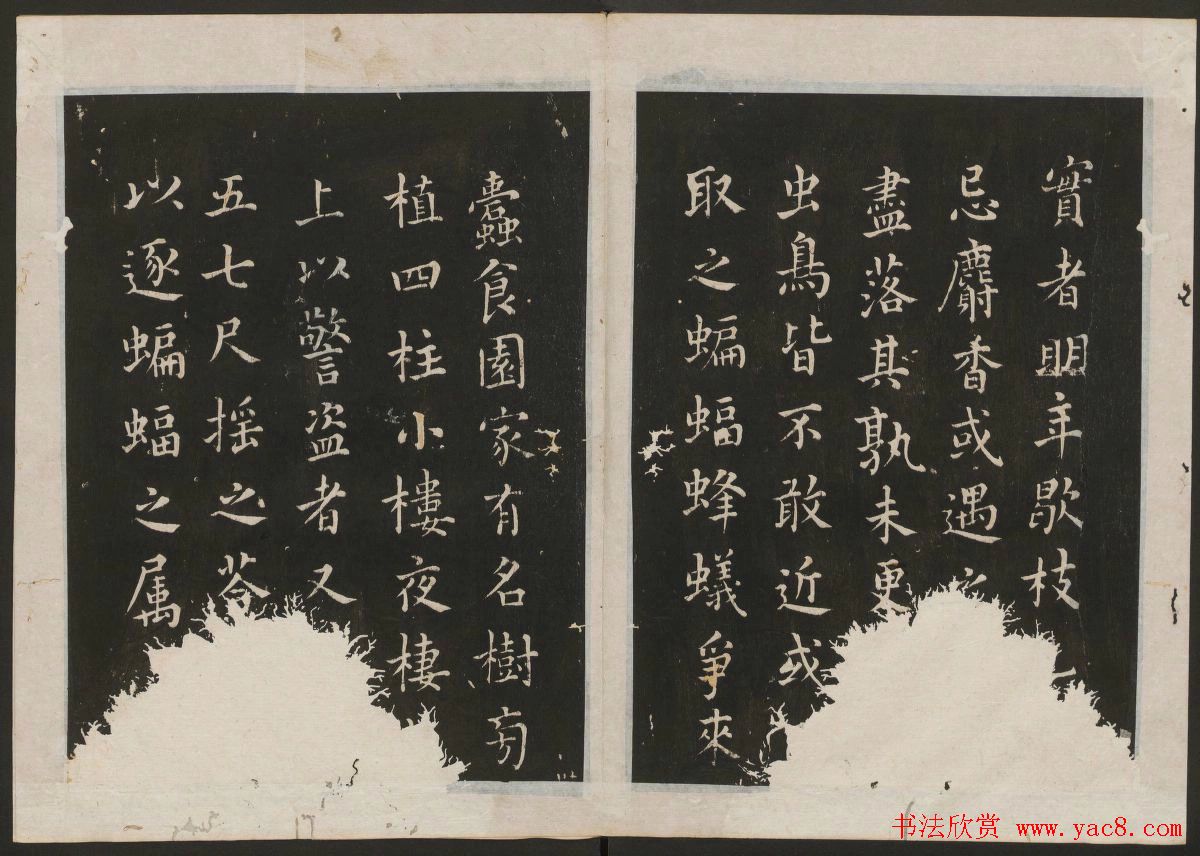 實者明年歇枝
忌麝香或遇之
盡落其孰未更
虫鳥皆不敢近或
取之蝙蝠蜂蟻爭來
蠹食園家有名樹旁
植四柱小樓夜棲
上以警盜者又
五七尺搖之荅
以逐蝙蝠之属
书法欣赏 www.yac8.com